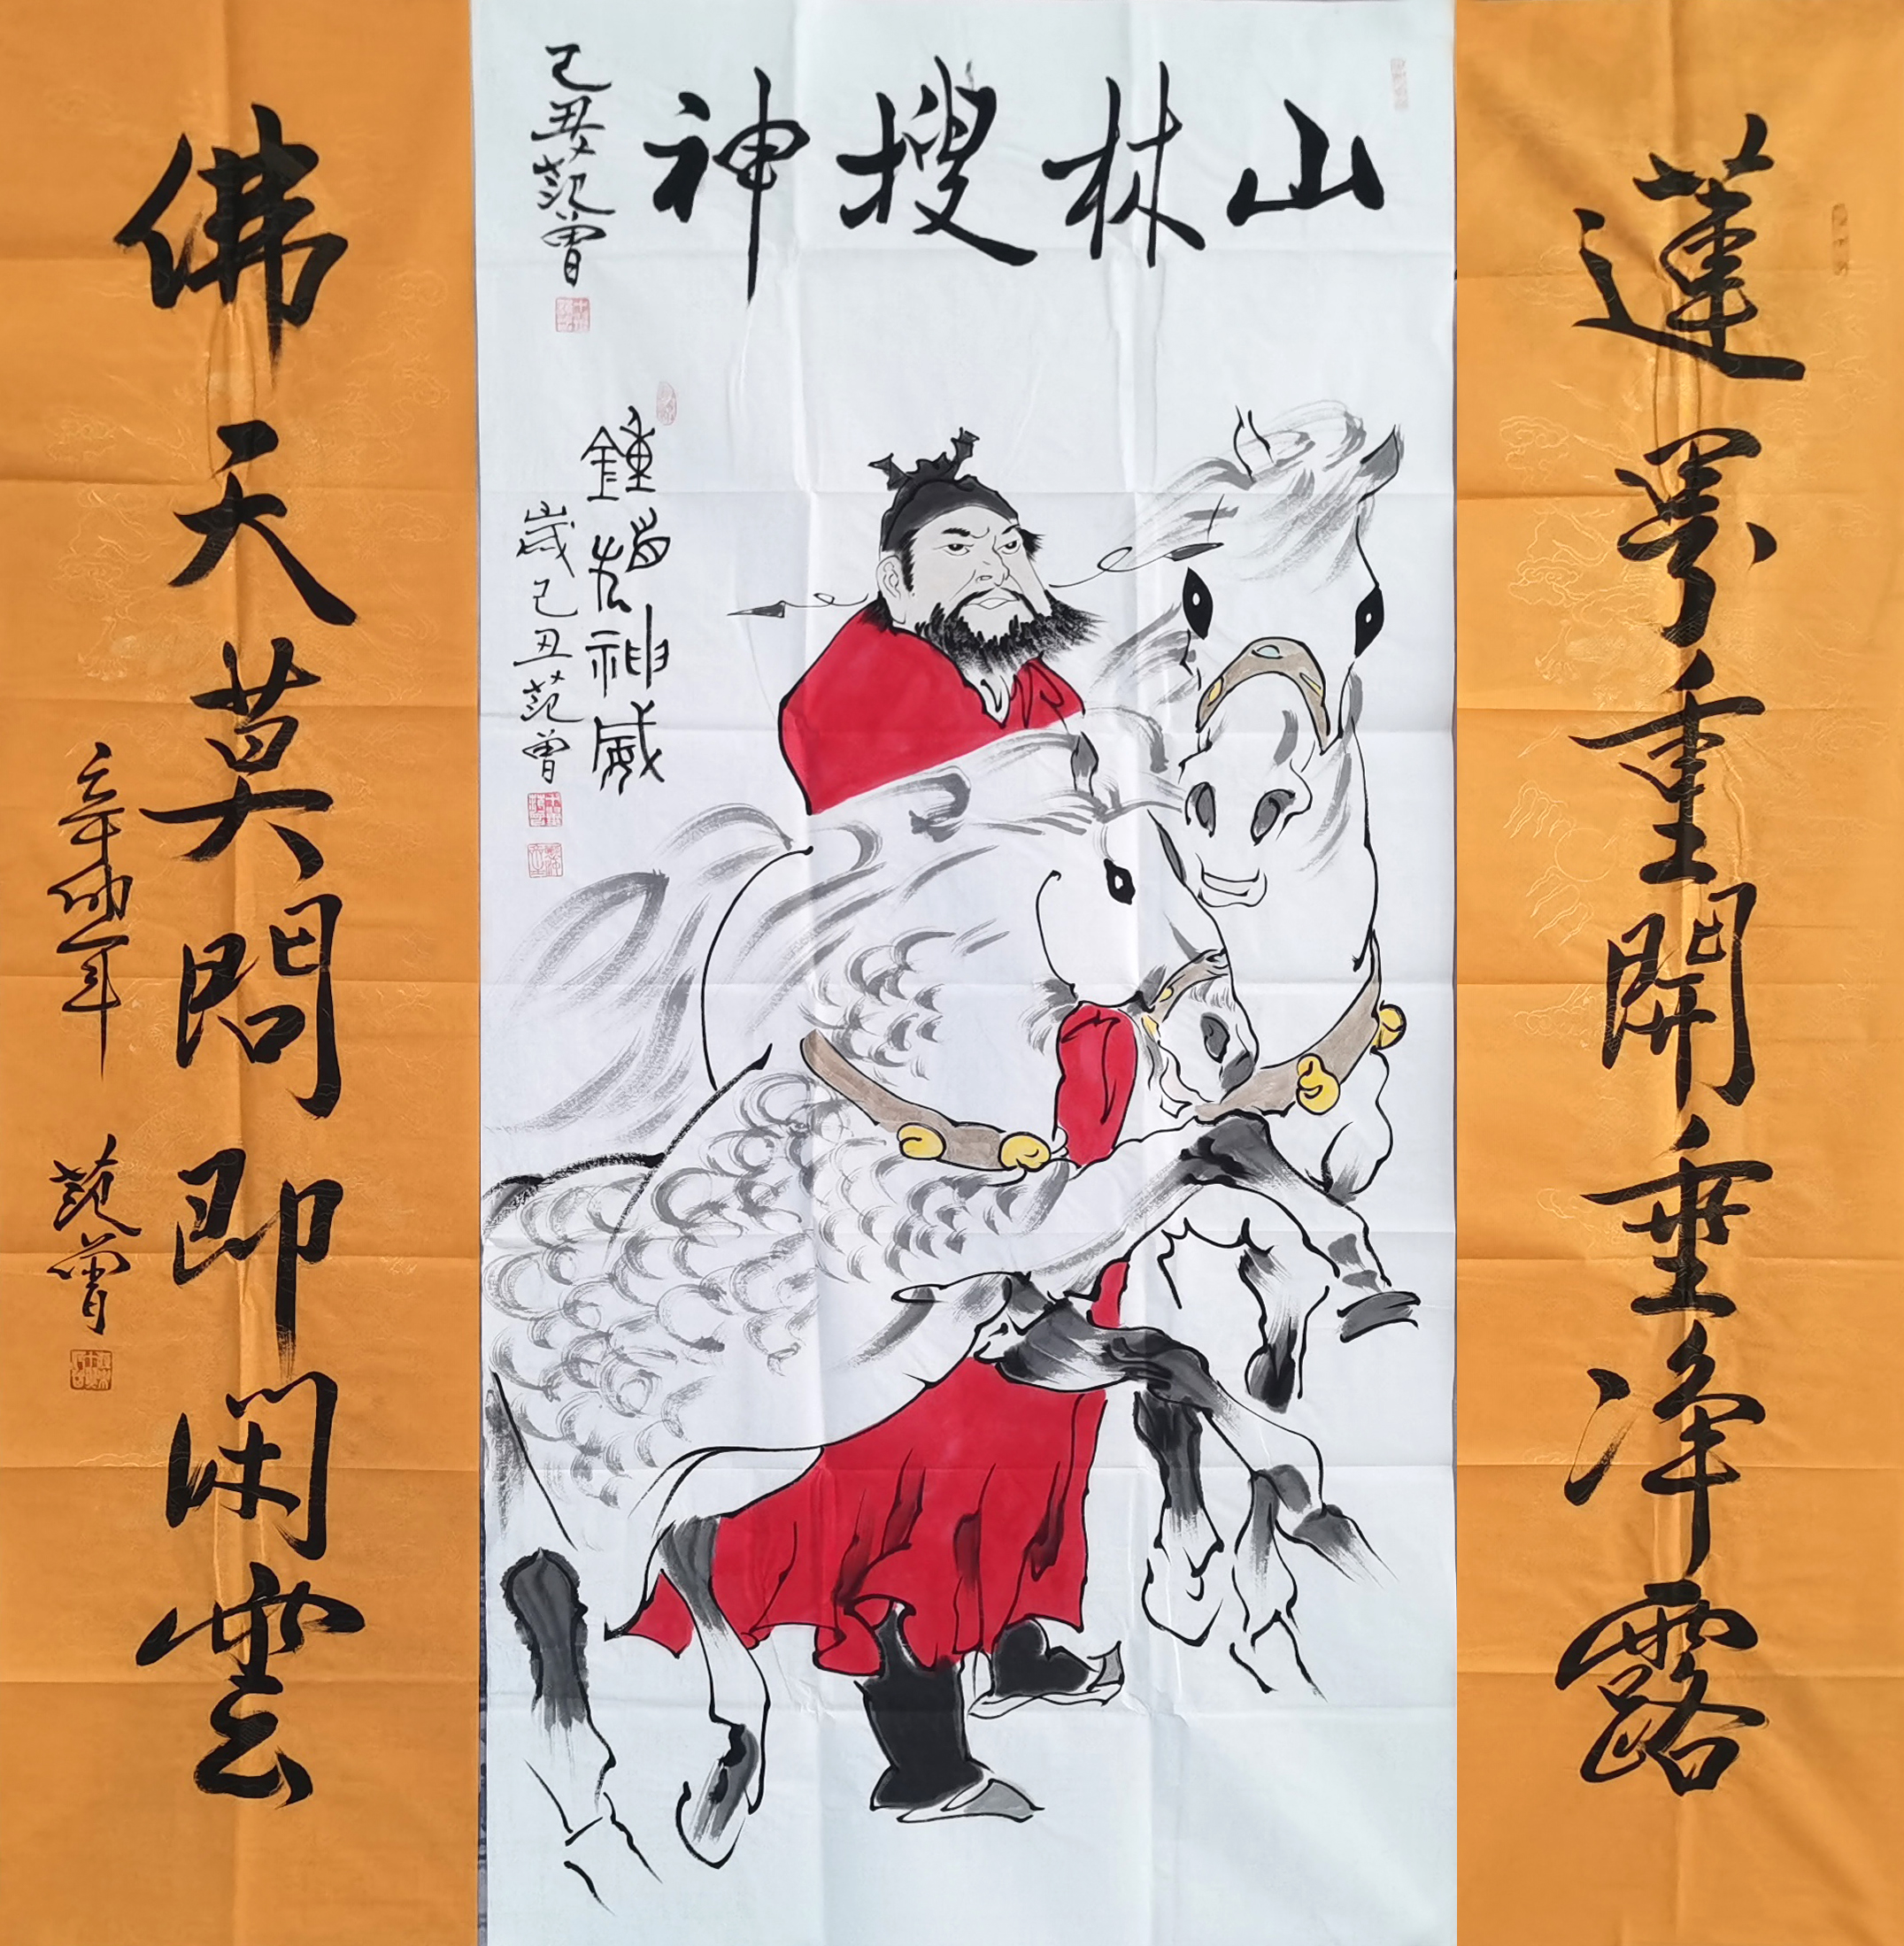 山林搜神
己丑范曾
鍾馗神威
歲己丑范曾
蓮萼重開垂淨露
佛天莫問即閑雲
辛卯年
范曾